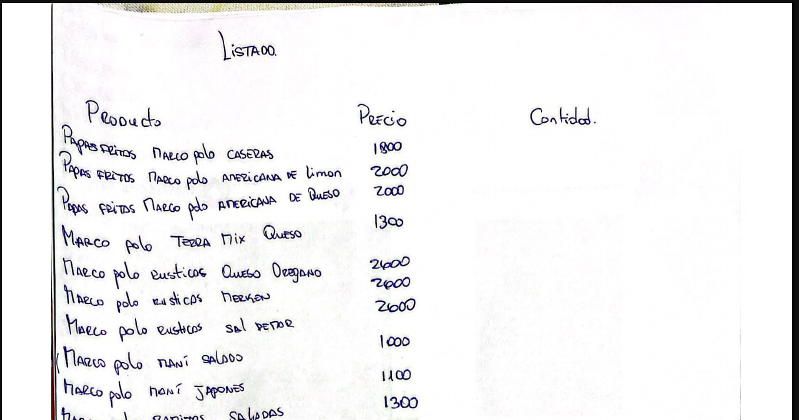 LISTADO.
PRODUCTO PRECIO Cantidad.
PAPAS FRITAS MARCO polo CASERAS 1800
PAPAS FRITAS MARCO polo AMERICANA DE Limon 2000
PAPAS FRITAS MARCO polo AMERICANA DE QUESO 2000
MARCO polo TERRA MIX QUESO 1300
MARCO polo RUSTICAS QUESO OREGANO 2600
MARCO polo RUSTICAS MERKEN 2600
MARCO polo RUSTICAS SAL DE MAR 2600
MARCO polo MANÍ SALADO 1000
MARCO polo MANÍ JAPONES 1100
MARCO polo RAMITAS SALADAS 1300